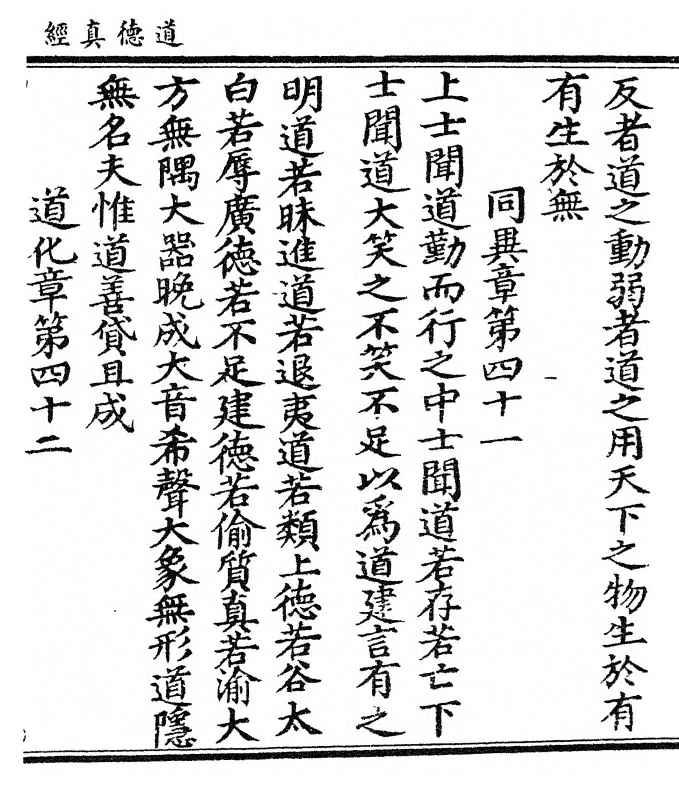 道德真經
反者道之動弱者道之用天下之物生於有
有生於無
同異章第四十一
上士聞道勤而行之中士聞道若存若亡下
士聞道大笑之不笑不足以為道建言有之
明道若昧進道若退夷道若類上德若谷太
白若辱廣德若不足建德若偷質真若渝大
方無隅大器晚成大音希聲大象無形道隱
無名夫惟道善貸且成
道化章第四十二